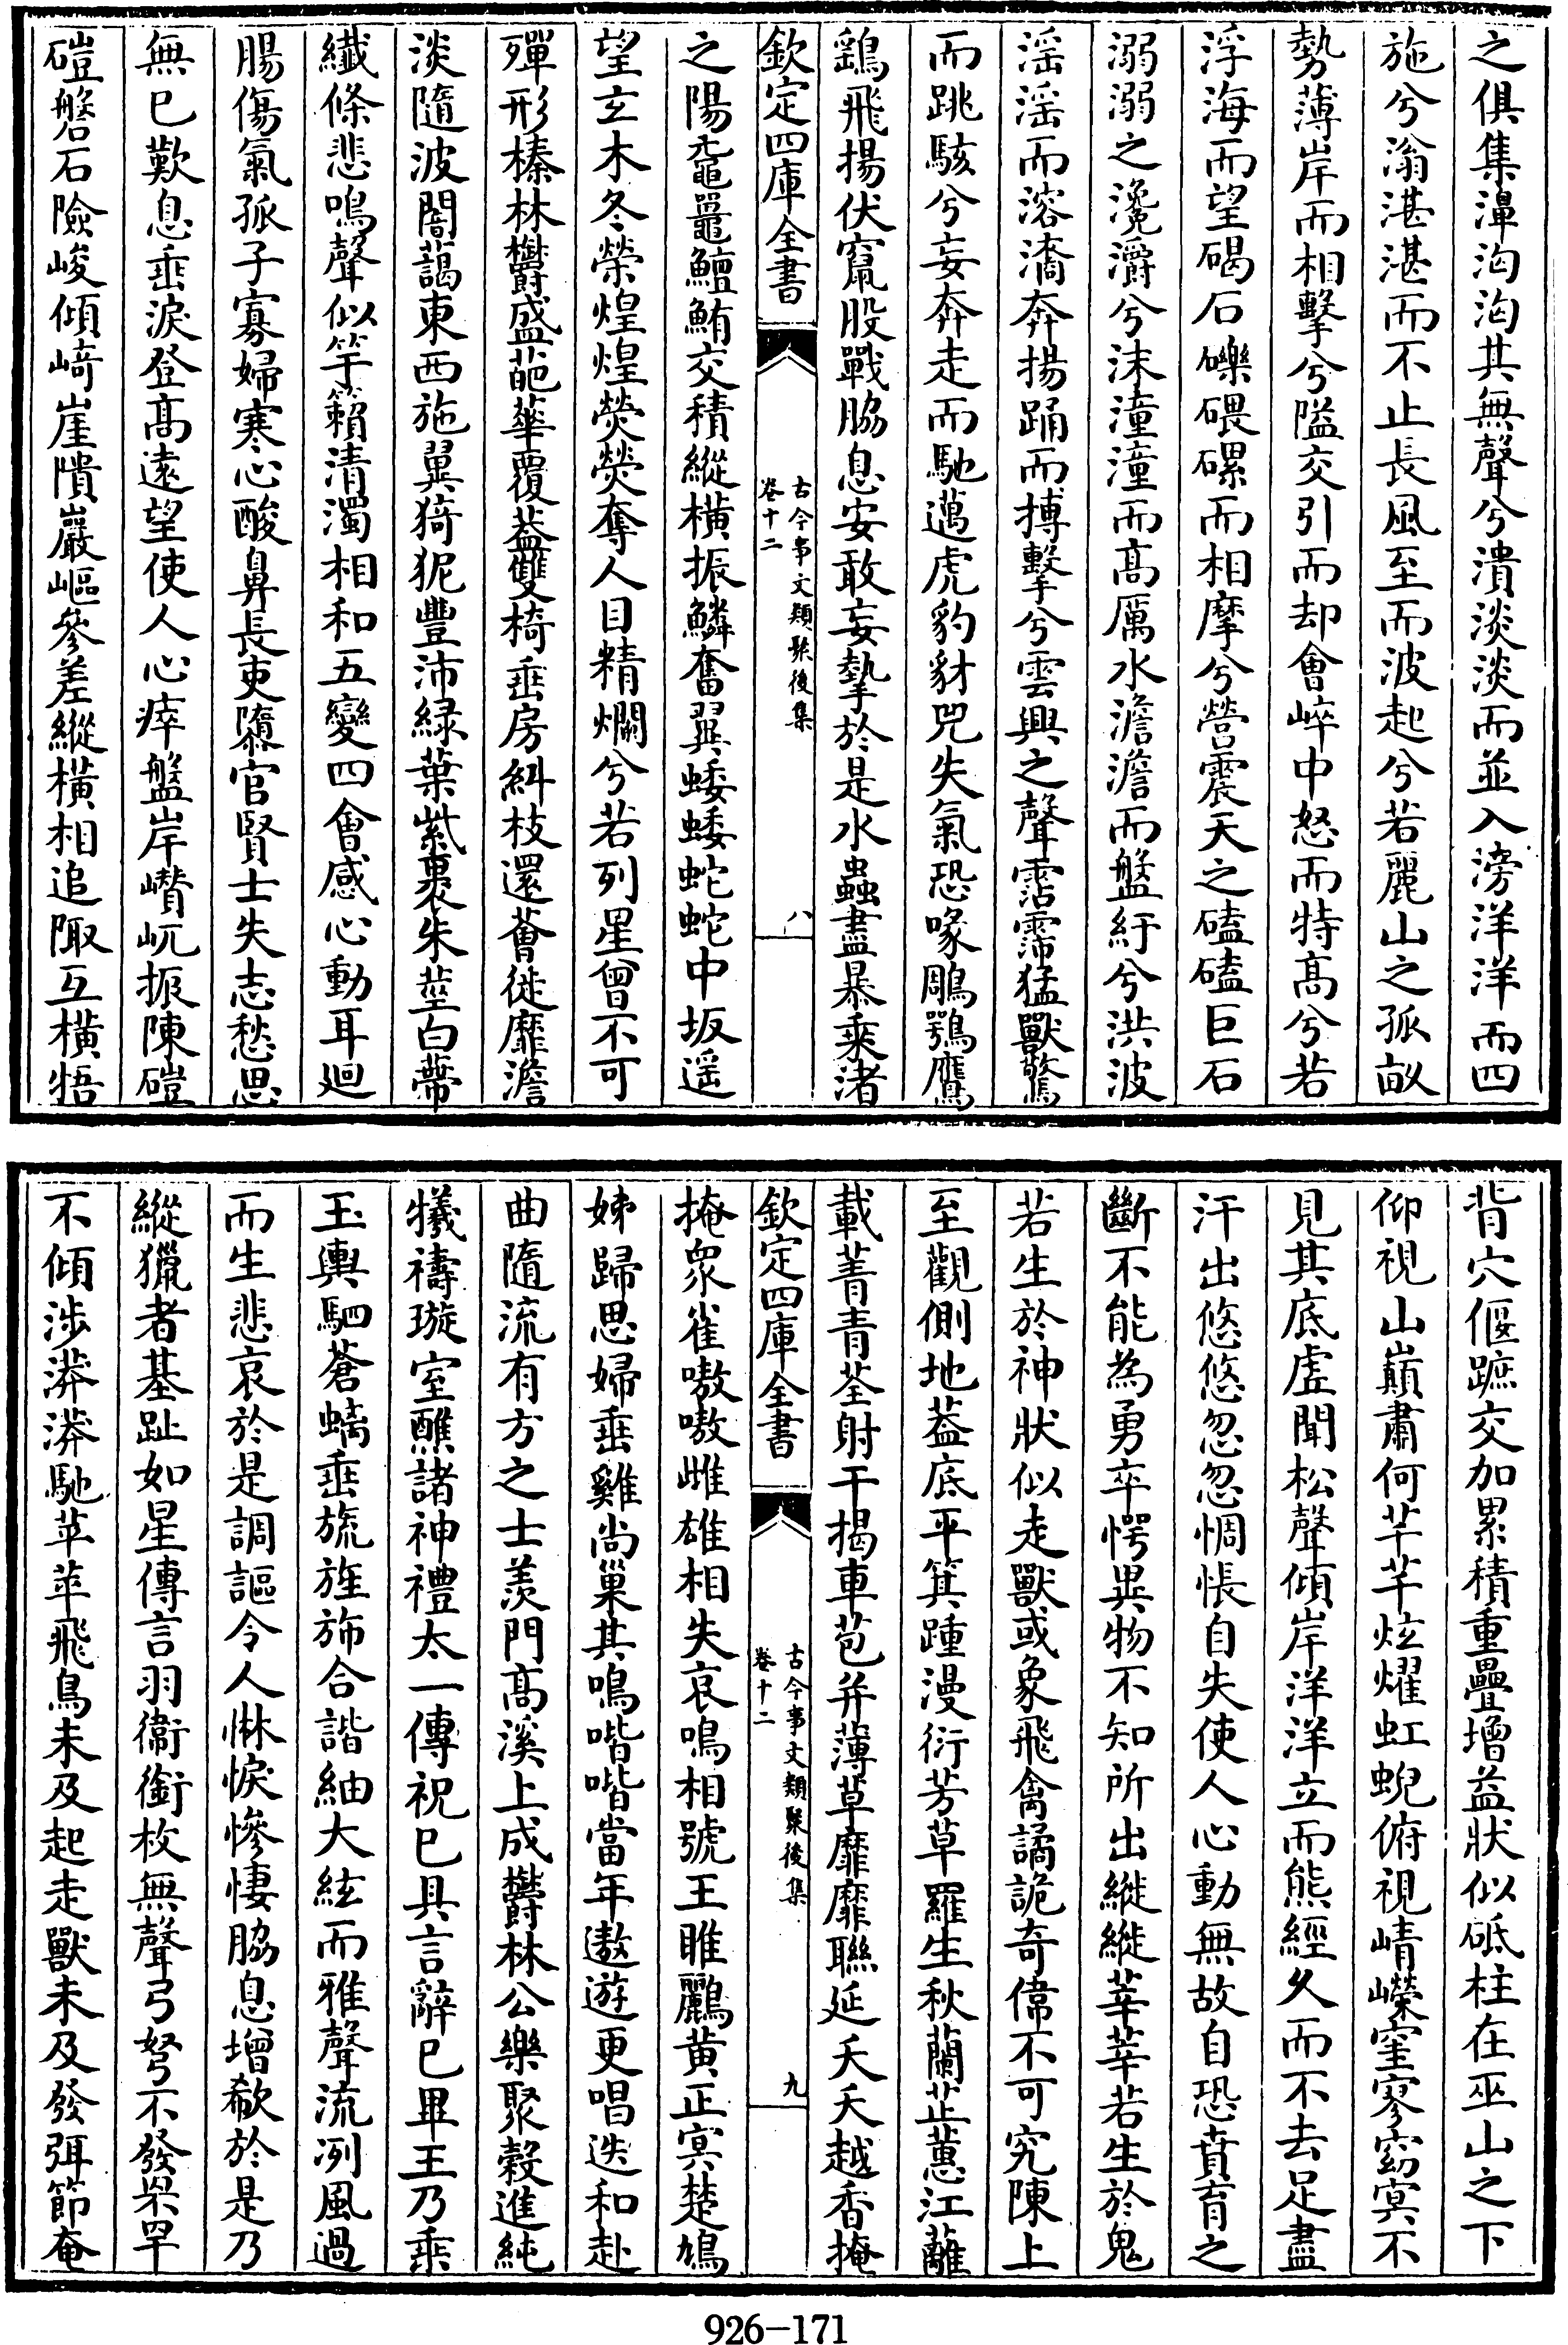 之俱集潬洶洶其無聲兮潰淡淡而並入滂洋洋而四
施兮滃湛湛而不止長風至而波起兮若麗山之孤畝
勢薄岸而相擊兮隘交引而却會崪中怒而特髙兮若
浮海而望碣石礫磥磥而相摩兮營震天之磕磕巨石
溺溺之瀺灂兮沫潼潼而髙厲水澹澹而盤紆兮洪波
淫淫而溶㵝奔揚踊而搏擊兮雲興之聲霈霈猛獸驚
而跳駭兮妄奔走而馳邁虎豹豺兕失氣恐喙鵰鶚鷹
鷂飛揚伏竄股戰脇息安敢妄摯於是水蟲盡暴乘渚
欽定四庫全書
古今事文類聚後集
卷十二
八
之陽黿鼉鱣鮪交積縱橫振鱗奮翼蜲蜲蛇蛇中坂遥
望玄木冬榮煌煌熒熒奪人目精爛兮若列星曾不可
殫形榛林欝盛葩華覆葢雙椅垂房糾枝還㑹徙靡澹
淡隨波闇藹東西施翼猗狔豐沛緑葉紫裹朱莖白蔕
纎條悲鳴聲似竽籟清濁相和五變四㑹感心動耳廻
腸傷氣孤子寡婦寒心酸鼻長吏隳官賢士失志愁思
無已歎息垂淚登髙遠望使人心瘁盤岸巑岏振陳磑
磑磐石險峻傾﨑崖隤巖嶇參差縱橫相追陬互橫啎
背穴偃蹠交加累積重疊增益狀似砥柱在巫山之下
仰視山巔肅何芊芊炫燿虹蜺俯視崝嶸窐寥窈㝠不
見其底虛聞松聲傾岸洋洋立而熊經久而不去足盡
汗出悠悠忽忽惆悵自失使人心動無故自恐賁育之
斷不能為勇卒愕異物不知所出縱縱莘莘若生於鬼
若生於神狀似走獸或象飛禽譎詭奇偉不可究陳上
至觀側地葢底平箕踵漫衍芳草羅生秋蘭茝蕙江蘺
載菁青荃射干揭車苞并薄草靡靡聯延夭夭越香掩
欽定四庫全書
古今事文類聚後集
卷十二
九
掩衆雀嗷嗷雌雄相失哀鳴相號王雎鸝黄正㝠楚鳩
姊歸思婦垂雞尚巢其鳴喈喈當年遨遊更唱迭和赴
曲隨流有方之士羨門髙溪上成欝林公樂聚榖進純
犧禱璇室醮諸神禮太一傳祝已具言辭已畢王乃乘
玉輿駟蒼螭垂旒旌斾合諧紬大絃而雅聲流冽風過
而生悲哀於是調謳令人惏悷慘悽脇息增欷於是乃
縱獵者基趾如星傳言羽衞銜枚無聲弓弩不發罘罕
不傾涉漭漭馳苹苹飛鳥未及起走獸未及發弭節奄
926-171